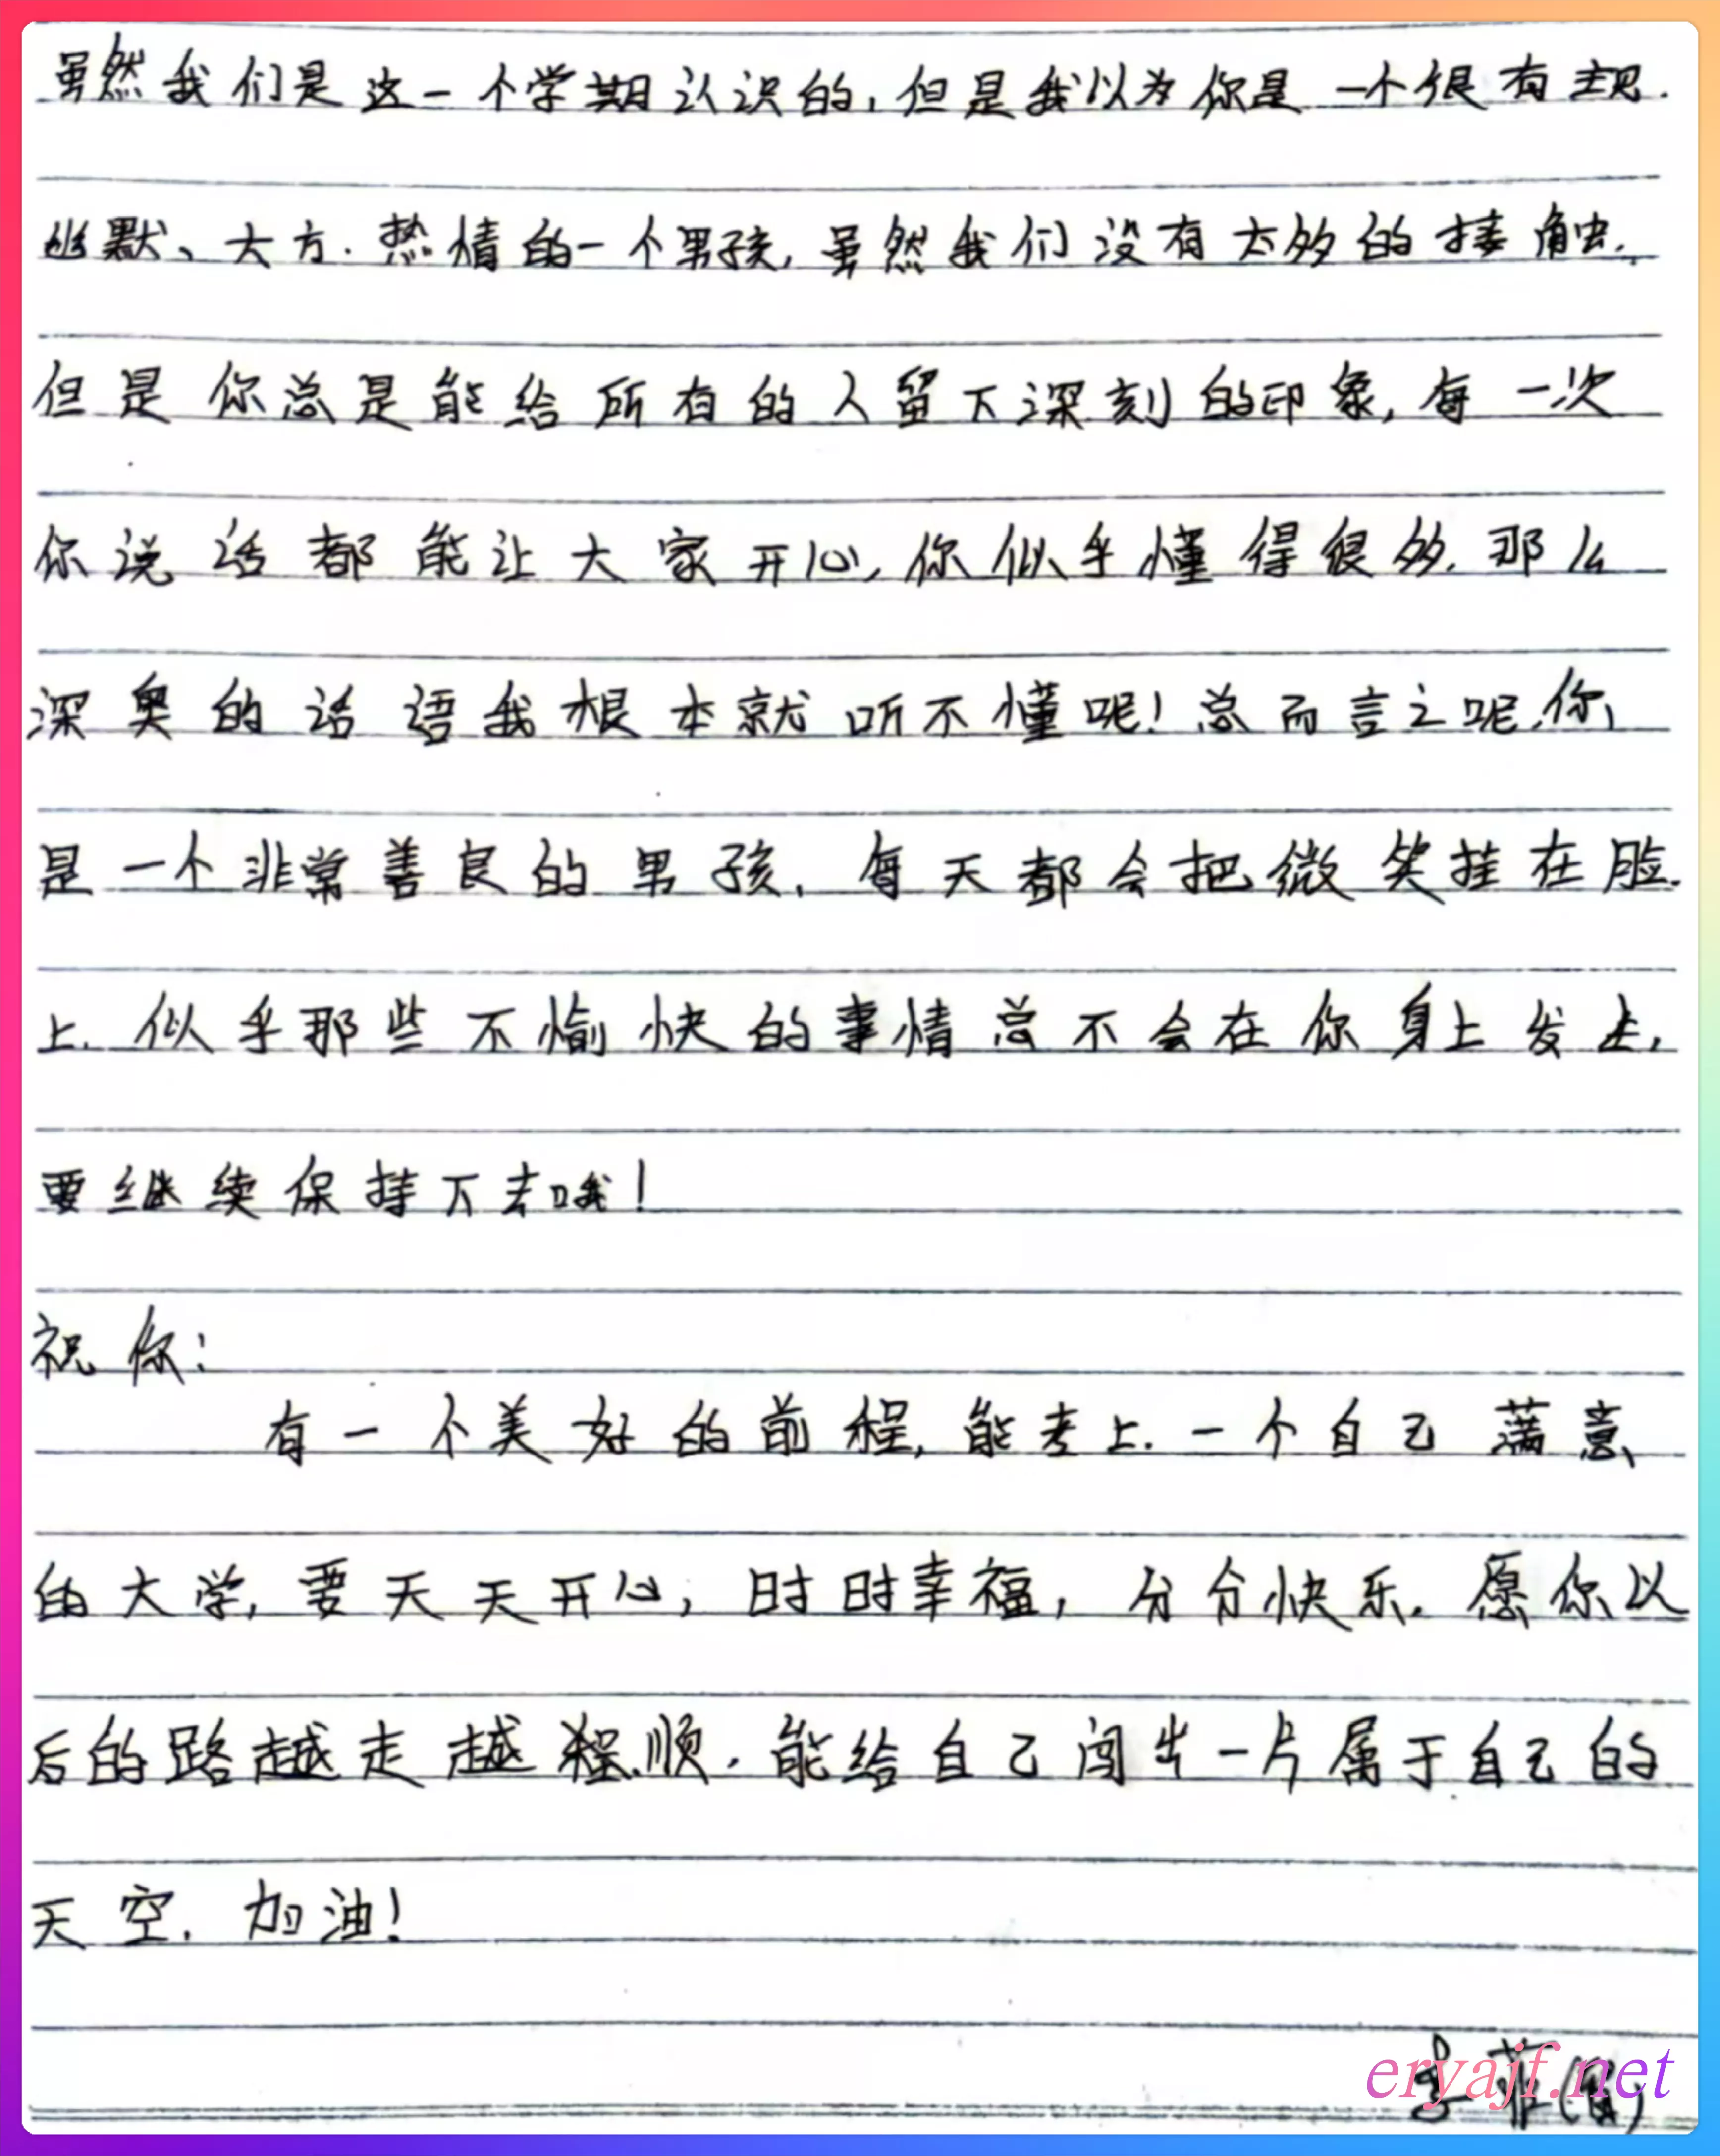 虽然我们是这一个学期认识的,但是我以为你是一个很有主见.
幽默、大方.热情的一个男孩,虽然我们没有太多的接触,
但是你总是能给所有的人留下深刻的印象,每一次
你说话都能让大家开心,你似乎懂得很多.那么
深奥的话语我根本就听不懂呢!总而言之呢,你
是一个非常善良的男孩,每天都会把微笑挂在脸
上.似乎那些不愉快的事情总不会在你身上发生,
要继续保持下去哦!
祝你:
有一个美好的前程,能考上.一个自己满意
的大学,要天天开心,时时幸福,分分快乐.愿你以
后的路越走越顺.能给自己闯出一片属于自己的
天空.加油!
菲(留)
eryajf.net